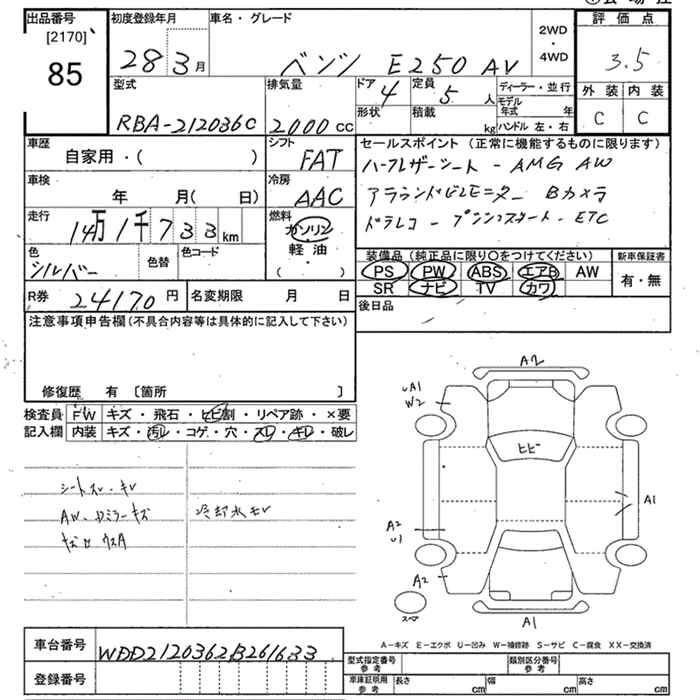 出品番号
[2170]
85
初度登録年月
28 3月
車名・グレード
ベンツ E250 AV
2WD
・
4WD
評価点
3.5
外装 内装
C C
型式
RBA-212036C
排気量
2000cc
ドア
4
形状
定員
5人
積載
kg
ディーラー・並行
モデル
年式 年
ハンドル 左・右
車歴
自家用・( )
シフト
FAT
車検
年 月( 日)
冷房
AAC
走行
14万1千733km
燃料
ガソリン
軽・油
( )
色
シルバー
色替
色コード
R券 24170円
名変期限 月 日
セールスポイント (正常に機能するものに限ります)
ハーフレザーシート - AMG AW
アラウンドビューモニター Bカメラ
ドラレコ - プッシュスタート - ETC
装備品 (純正品に限り○をつけてください)
PS PW ABS エアB AW
SR ナビ TV カワ
新車保証書
有・無
後日品
注意事項申告欄(不具合内容等は具体的に記入して下さい)
修復歴 有 〔箇所 〕
検査員 FW キズ・飛石・ヒビ割・リペア跡・×要
記入欄 内装 キズ・汚レ・コゲ・穴・スレ・キレ・破レ
シートスレ・キレ
AW、ドミラーキズ
冷却水モレ
A2
UA1
W2
ヒビ
A1
A2
U1
A2
スペア
A1
A-キズ E-エクボ U-凹み W-補修跡 S-サビ C-腐食 XX-交換済
車台番号 WDD2120362B261633
登録番号
型式指定番号
参考
類別区分番号
参考
車庫証明用
参考
長さ cm 幅 cm 高さ cm